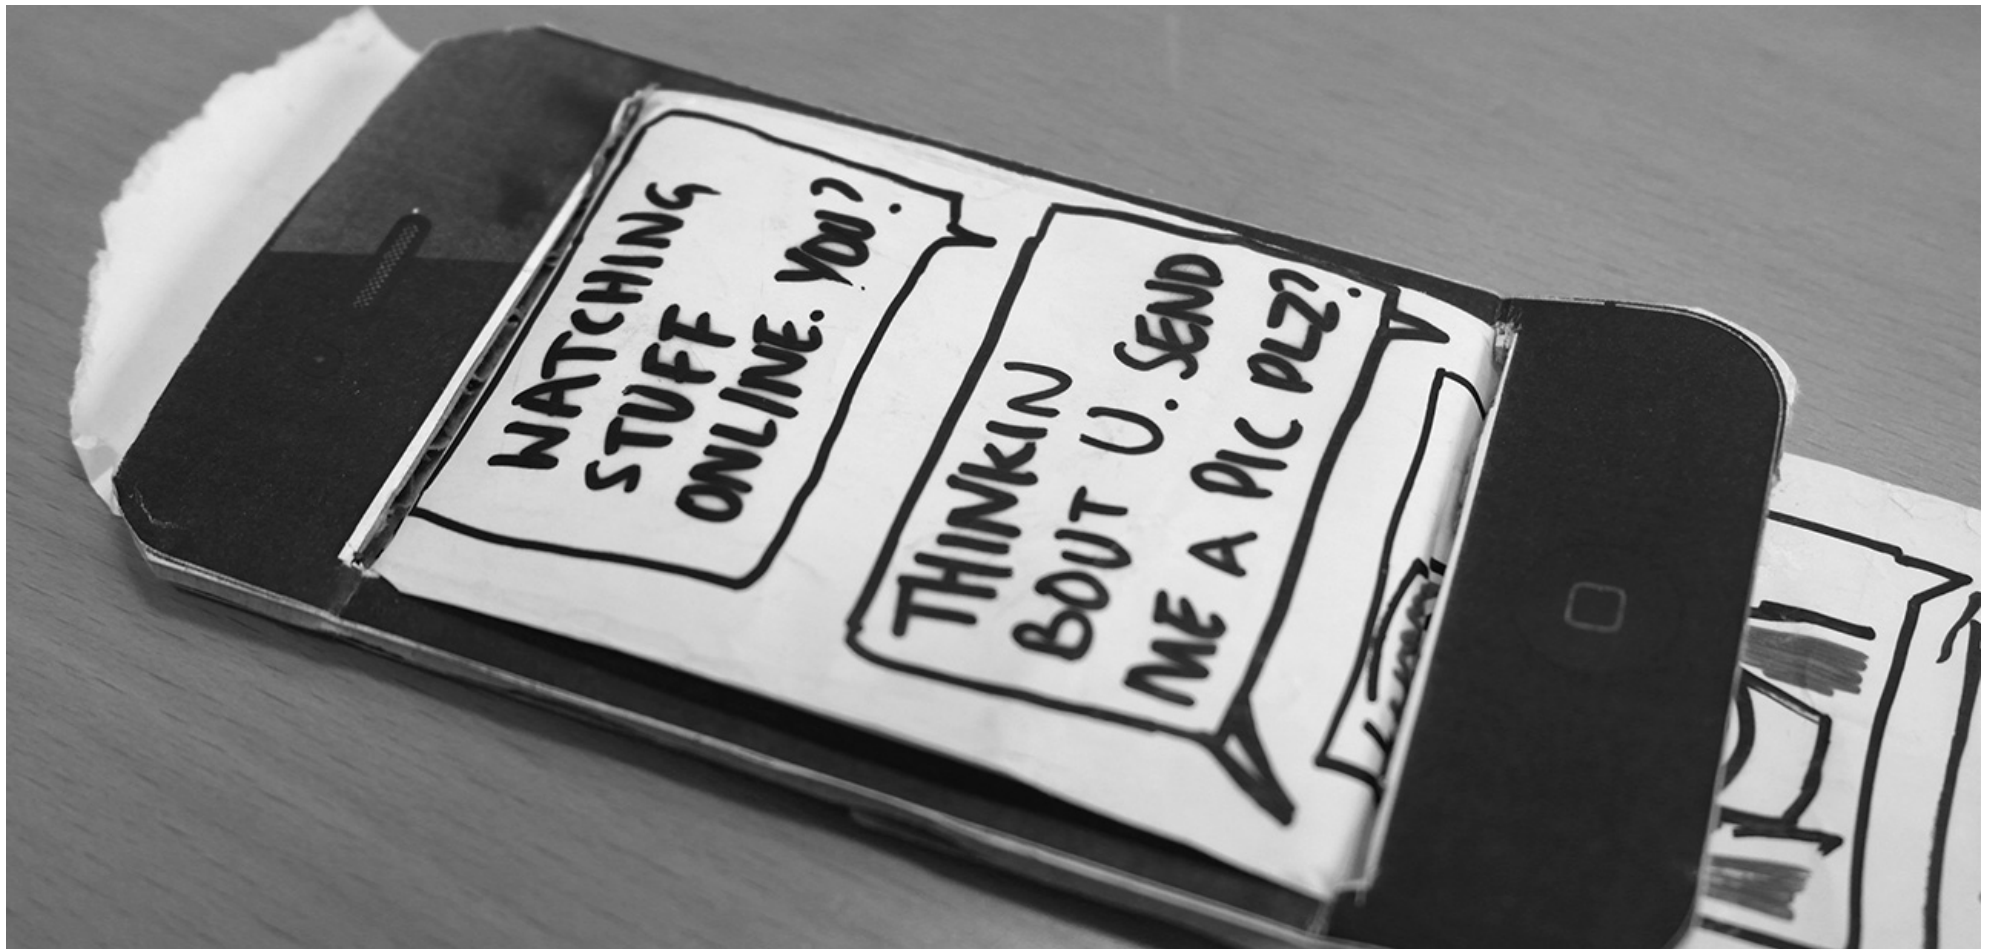 WATCHING
STUFF
ONLINE. YOU?
THINKIN
BOUT U. SEND
ME A PIC PLZ?